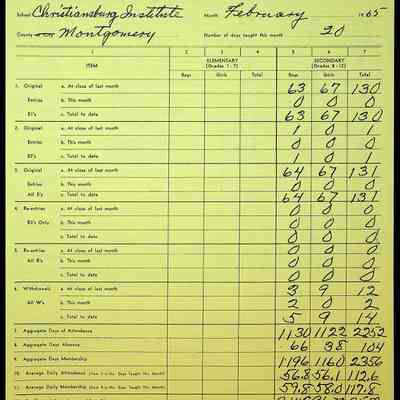 School Christiansburg Institute Month February 1965
County Montgomery Number of days taught this month 20
1 2 3 4 5 6 7
ITEM ELEMENTARY (Grades 1 - 7) SECONDARY (Grades 8 - 12)
Boys Girls Total Boys Girls Total
1. Original a. At close of last month 63 67 130
Entries b. This month 0 0 0
E1's c. Total to date 63 67 130
2. Original a. At close of last month 1 0 1
Entries b. This month 0 0 0
E2's c. Total to date 1 0 1
3. Original a. At close of last month 64 67 131
Entries b. This month 0 0 0
All E's c. Total to date 64 67 131
4. Re-entries a. At close of last month 0 0 0
b. This month 0 0 0
c. Total to date 0 0 0
5. Re-entries a. At close of last month 0 0 0
All R's b. This month 0 0 0
c. Total to date 0 0 0
6. Withdrawals a. At close of last month 3 9 12
All W's b. This month 2 0 2
c. Total to date 5 9 14
7. Aggregate Days of Attendance 1130 1122 2252
8. Aggregate Days Absence 66 38 104
9. Aggregate Days Membership 1196 1160 2356
10. Average Daily Attendance 56.8 56.1 112.6
11. Average Daily Membership 59.8 58.0 117.8